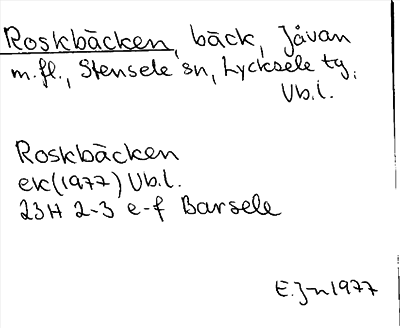 Roskbäcken, bäck, Jåvan
m.fl., Stensele sn, Lycksele tg,
Vb.l.
Roskbäcken
ek(1977) Vb.l.
23H 2-3 e-f Barsele
E.Jn 1977